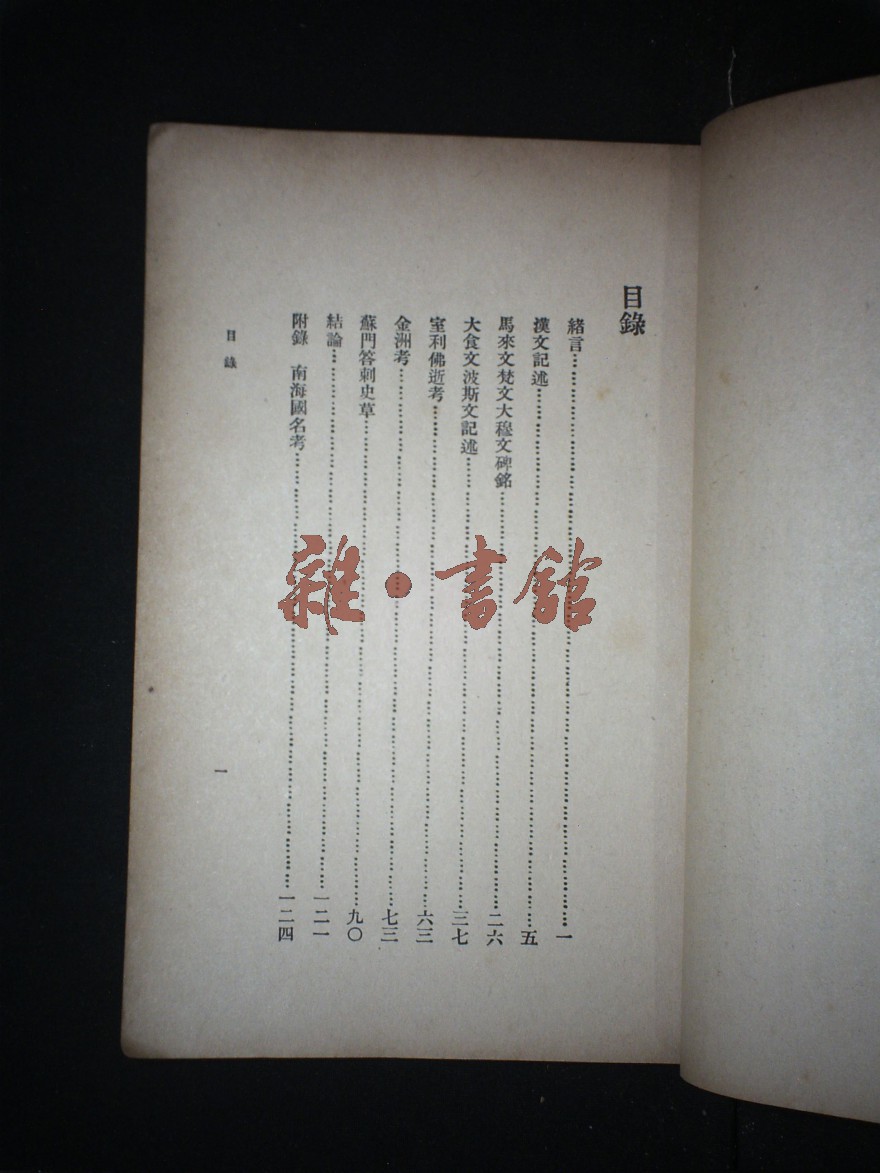 目錄
緒言……一
漢文記述……五
馬來文梵文大穆文碑銘……二六
大食文波斯文記述……三七
室利佛逝考……六三
金洲考……七三
蘇門答刺史草……九〇
結論……一二一
附錄　南海國名考……一二四
目錄
一
雜·書館